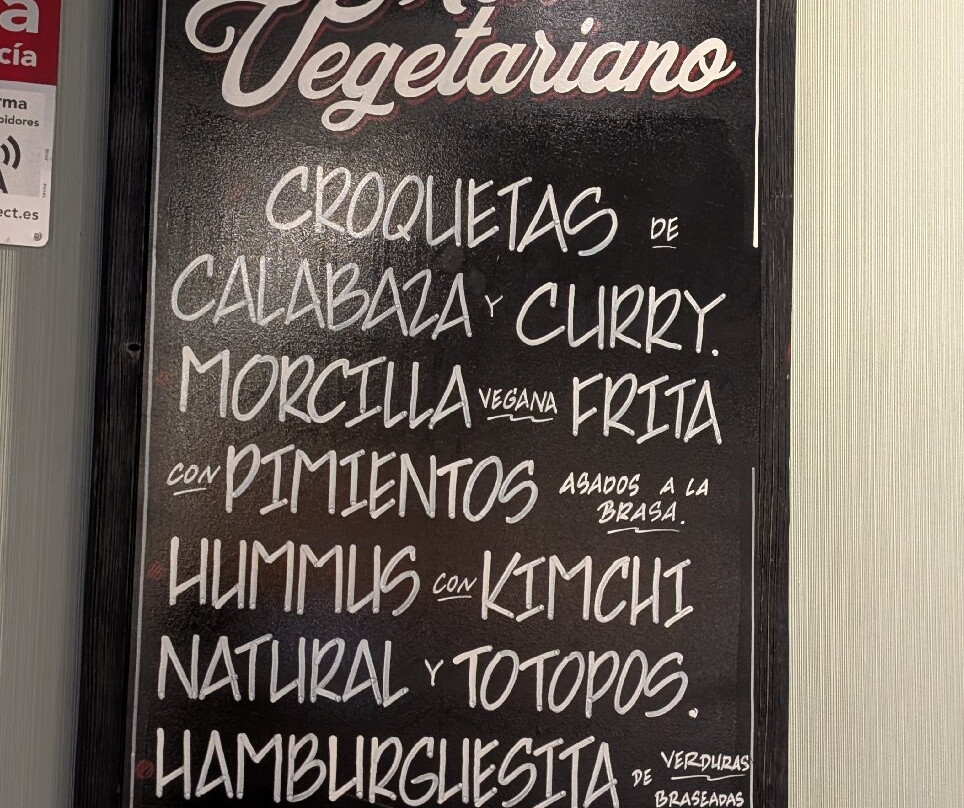 a
cía
rma
bidores
ect.es
Vegetariano
CROQUETAS DE
CALABAZA Y CURRY.
MORCILLA VEGANA FRITA
CON PIMIENTOS ASADOS A LA
BRASA.
HUMMUS CON KIMCHI
NATURAL Y TOTOPOS.
HAMBURGUESITA DE VERDURAS
BRASEADAS